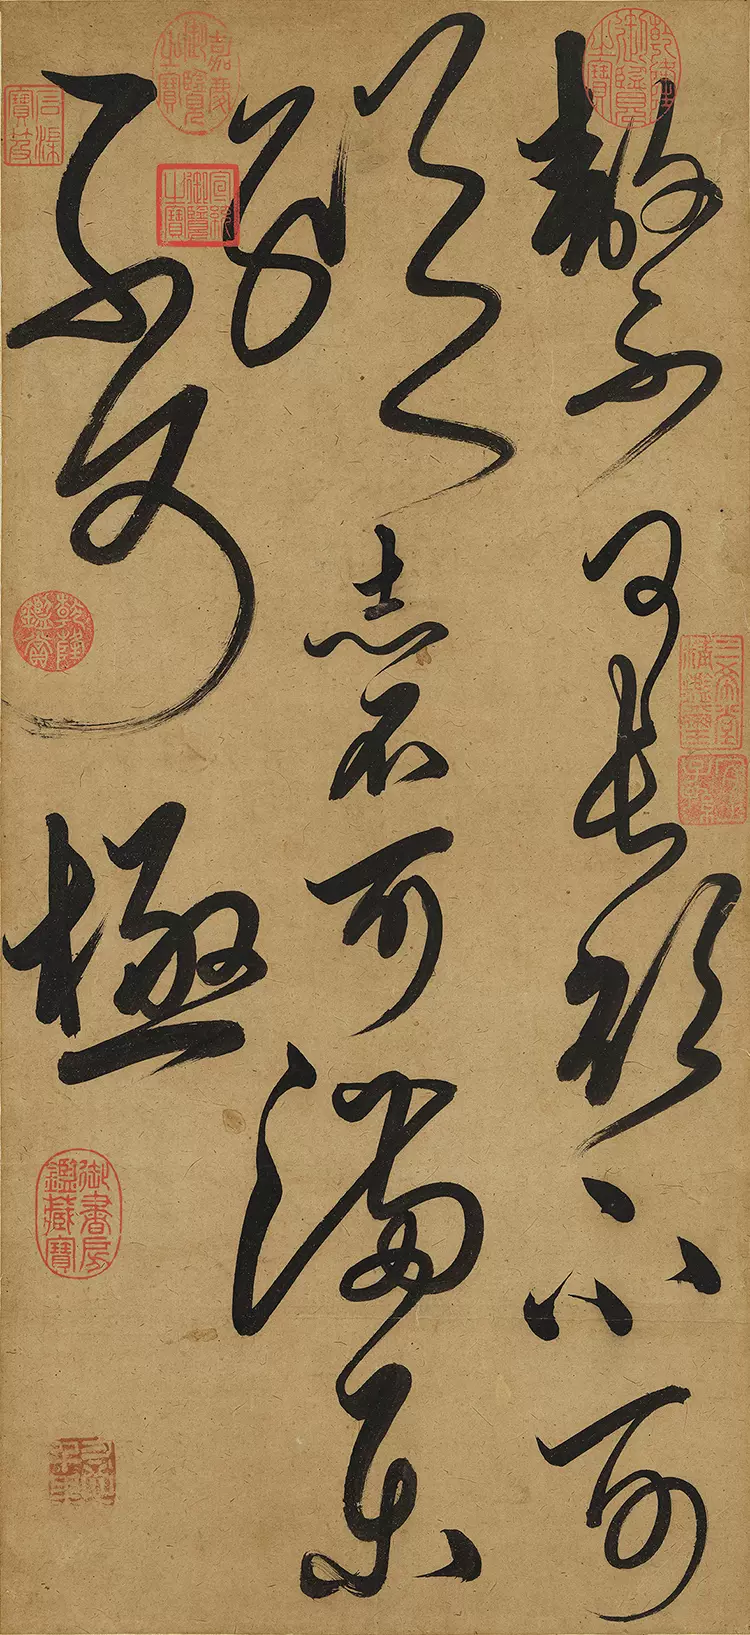 敖不可長欲不可
縱志不可滿樂
不可極
乾隆御覽之寶
嘉慶御覽之寶
宣統御覽之寶
石渠寶笈
三希堂精鑑璽
宜子孫
乾隆鑑賞
御書房鑑藏寶